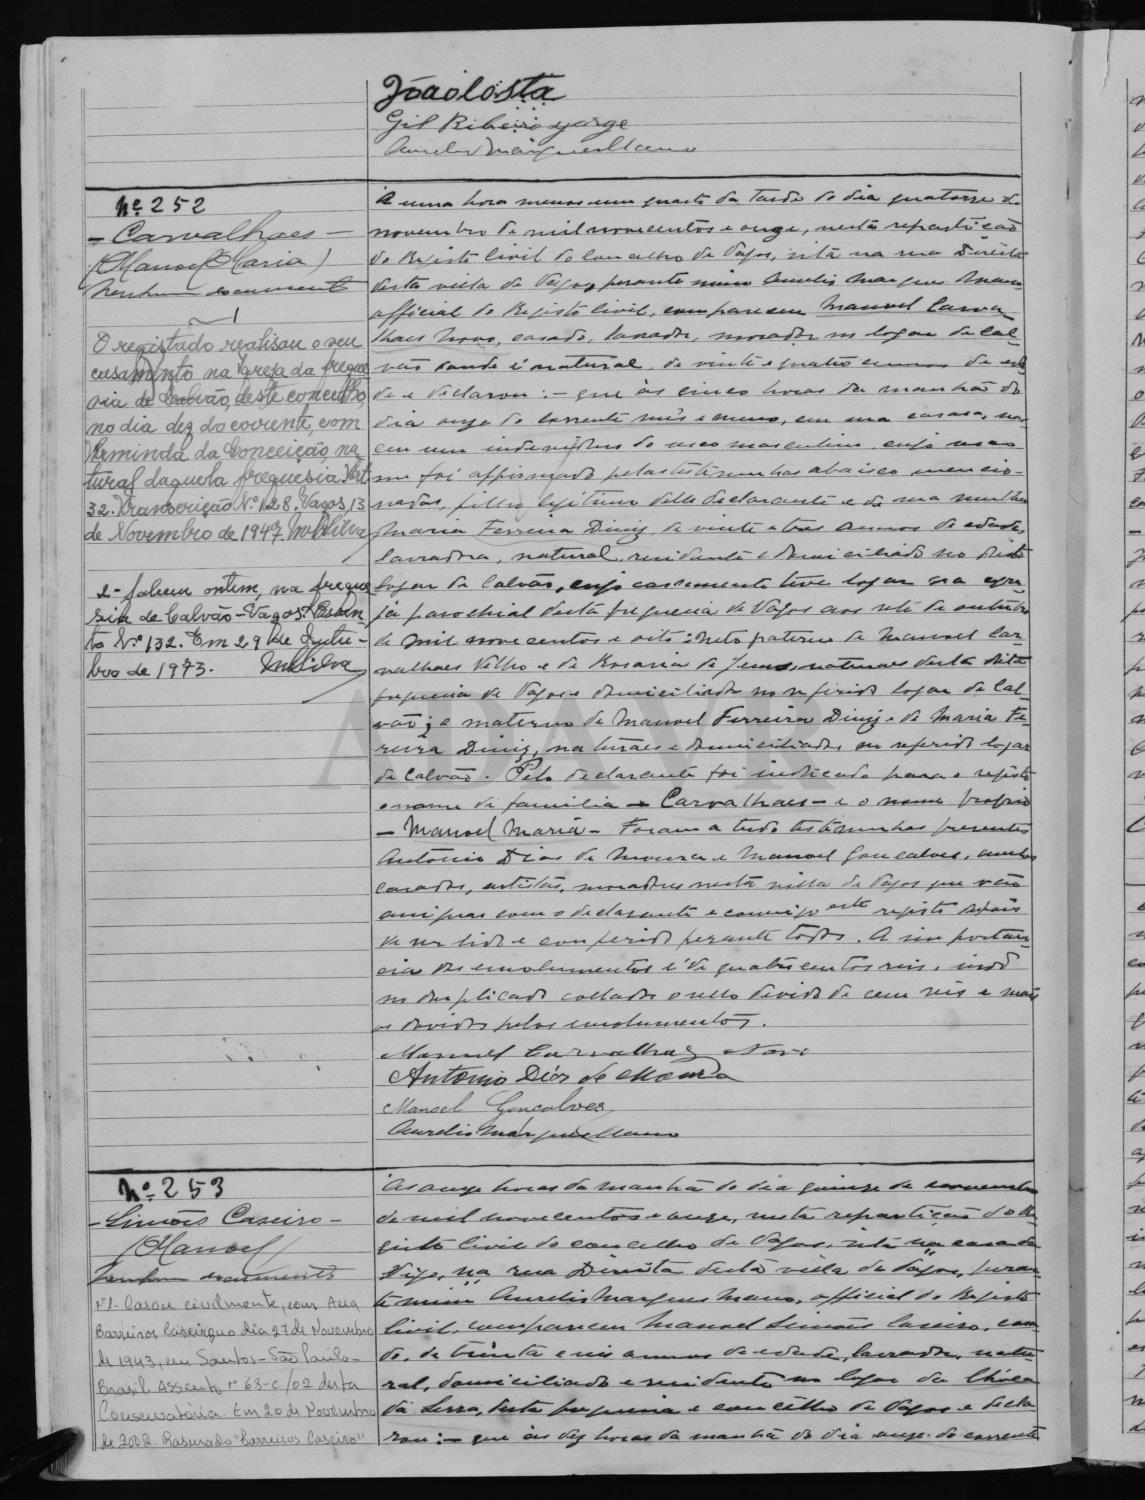 João Costa
Gil Ribeiro Jorge
Aurelio Marques Mano
Nº 252
- Carvalhaes -
(Manoel Maria)
Nenhum documento
O registado realisou o seu
casamento na Igreja da fregue
sia de Calvão, deste concelho,
no dia dez do corrente, com
Erminda da Conceição na
tural daquela freguesia.
32. Transcrição Nº 128. Vagos, 13
de Novembro de 1947. MSilva
2- Faleceu ontem, na fregue
sia de Calvão - Vagos. Assen
to Nº 132. Em 29 de
bro de 1973. MSilva
A uma hora menos um quarto da tarde do dia quatorze de
novembro de mil novecentos e onze, nesta repartição
do Registo Civil do concelho de Vagos, sita na rua Direita
desta villa de Vagos, perante mim Aurelio Marques Mano
official do Registo Civil, compareceu Manoel Carva
lhaes Novo, casado, lavrador, morador no logar de Cal-
vão donde é natural, de vinte e quatro annos de eda
de e declarou: - que ás cinco horas da manhã do
dia onze do corrente mês e anno, em sua casa, nas
ceu um individuo do sexo masculino, cujo sexo
me foi affirmado pelas testemunhas abaixo mencio-
nadas, filho legitimo delle declarante e de sua mulher
Maria Ferreira Diniz, de vinte e tres annos de edade,
lavradora, natural, residente e domiciliada no dito
logar de Calvão, cujo casamento teve logar na egre
ja parochial desta freguesia de Vagos aos sete de outubro
de mil novecentos e oito: Neto paterno de Manoel Car
valhaes Velho e de Rosaria de Jesus, naturaes desta dita
freguesia de Vagos e domiciliados no referido logar de Cal-
vão; e materno de Manoel Ferreira Diniz e de Maria Fe-
reira Diniz, naturaes e domiciliados no referido logar
de Calvão. Pelo declarante foi indicado para o registo
o nome de familia - Carvalhaes - e o nome proprio
- Manoel Maria - Foram a tudo testemunhas presentes
Antonio Dias de Moura e Manoel Gonçalves, ambos
casados, artistas, moradores nesta villa de Vagos que vão
assignar com o declarante e commigo este registo depois
de ser lido e conferido perante todos. A importan-
cia dos emolumentos é de quatrocentos reis, indo
no duplicado collados o sello devido de cem reis e mais
os devidos pelos emolumentos.
Manuel Carvalhaes Novo
Antonio Dias de Moura
Manoel Gonçalves
Aurelio Marques Mano
ADAVR
Nº 253
- Simões Caseiro -
(Manoel)
Nenhum documento
nº1- Casou civilmente, com Ana
Barreiros Caseiro no dia 27 de Novembro
de 1943, em Santos - São Paulo -
Brasil. Assento nº 63-C/02 desta
Conservatória. Em 20 de Novembro
de 2002. Rasurado "Barreiros Caseiro"
Ás onze horas da manhã do dia quinze de novembro
de mil novecentos e onze, nesta repartição do Re
gisto Civil do concelho de Vagos, sita na casa da
na rua Direita desta villa de Vagos, peran-
te mim Aurelio Marques Mano, official do Registo
Civil, compareceu Manoel Simões Caseiro, casa
do, de trinta e seis annos de edade, lavrador, natu
ral, domiciliado e residente no logar da
da Serra, desta freguesia e concelho de Vagos e decla
rou: - que ás dez horas da manhã do dia onze do corrente